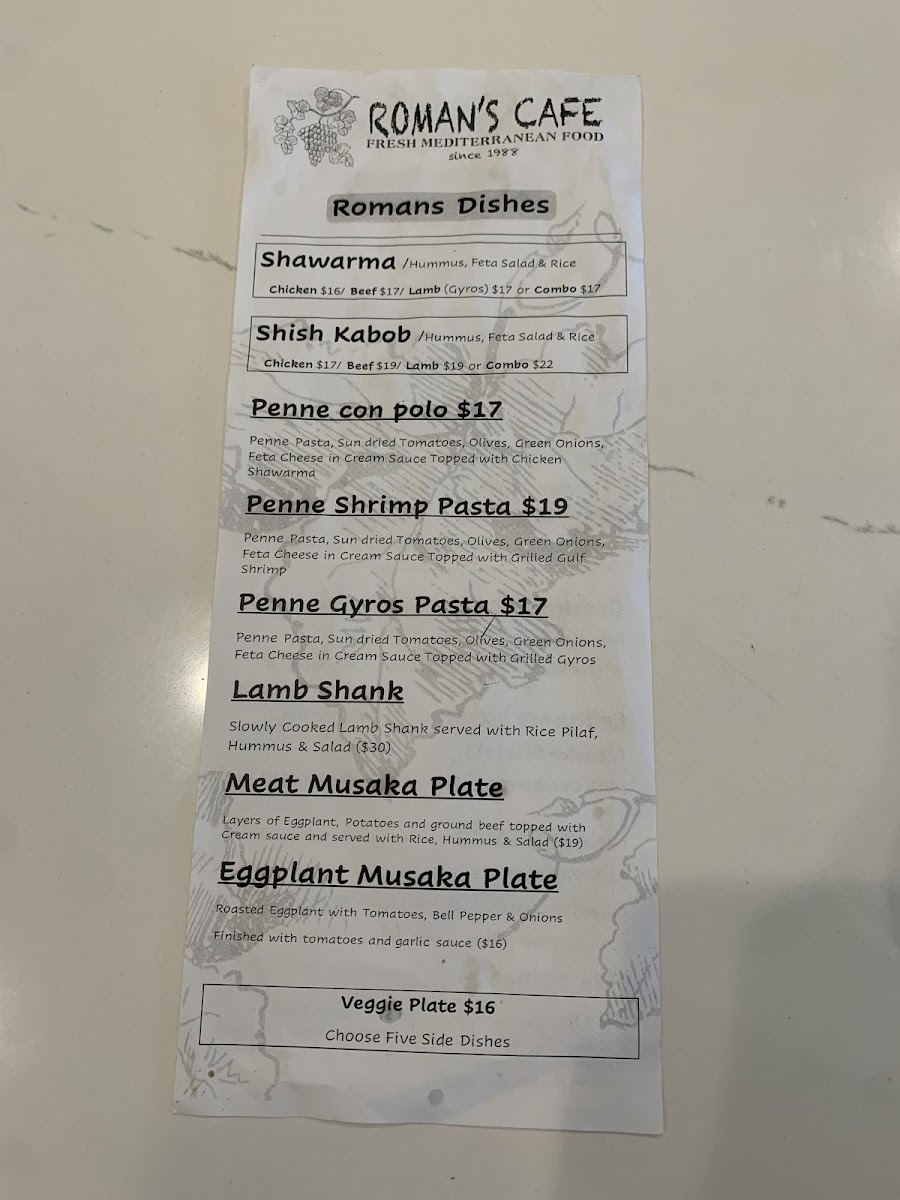 ROMAN'S CAFE
FRESH MEDITERRANEAN FOOD
since 1988
Romans Dishes
Shawarma /Hummus, Feta Salad & Rice
Chicken $16/ Beef $17/ Lamb (Gyros) $17 or Combo $17
Shish Kabob /Hummus, Feta Salad & Rice
Chicken $17/ Beef $19/ Lamb $19 or Combo $22
Penne con polo $17
Penne Pasta, Sun dried Tomatoes, Olives, Green Onions,
Feta Cheese in Cream Sauce Topped with Chicken
Shawarma
Penne Shrimp Pasta $19
Penne Pasta, Sun dried Tomatoes, Olives, Green Onions,
Feta Cheese in Cream Sauce Topped with Grilled Gulf
Shrimp
Penne Gyros Pasta $17
Penne Pasta, Sun dried Tomatoes, Olives, Green Onions,
Feta Cheese in Cream Sauce Topped with Grilled Gyros
Lamb Shank
Slowly Cooked Lamb Shank served with Rice Pilaf,
Hummus & Salad ($30)
Meat Musaka Plate
Layers of Eggplant, Potatoes and ground beef topped with
Cream sauce and served with Rice, Hummus & Salad ($19)
Eggplant Musaka Plate
Roasted Eggplant with Tomatoes, Bell Pepper & Onions
Finished with tomatoes and garlic sauce ($16)
Veggie Plate $16
Choose Five Side Dishes